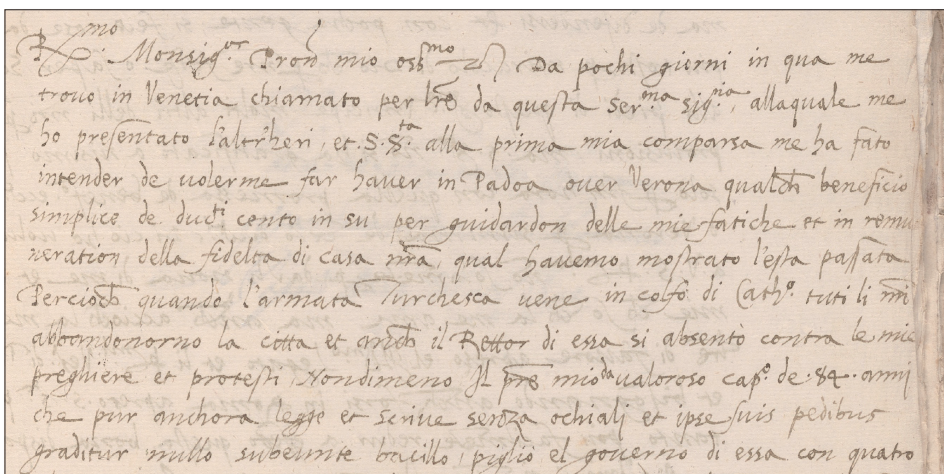 R.mo Monsig.or Pron mio oss.mo Da pochi giorni in qua me
trovo in Venetia chiamato per lre da questa Ser.ma Sig.ria, allaquale me
ho presentato l'altr'heri, et S. S.ta alla prima mia comparsa me ha fato
intender de volerme far haver in Padoa over Verona qualch beneficio
simplice de duc.ti cento in su per guidardon delle mie fatiche et in remu
neration della fidelta di casa nra, qual havemo mostrato l'esta passata
Percioch quando l'armata Turchesca vene in colfo di Cath.o tuti li nri
abbandonorno la citta et anch il Rettor di essa si absentò contra le mie
preghiere et protesti, Nondimeno Il pre mio da valoroso cap.o de .84. anni
che pur anchora legge et scrive senza ochiali et ipse suis pedibus
graditur nullo subeunte bacillo, pigliò el governo di essa con quatro